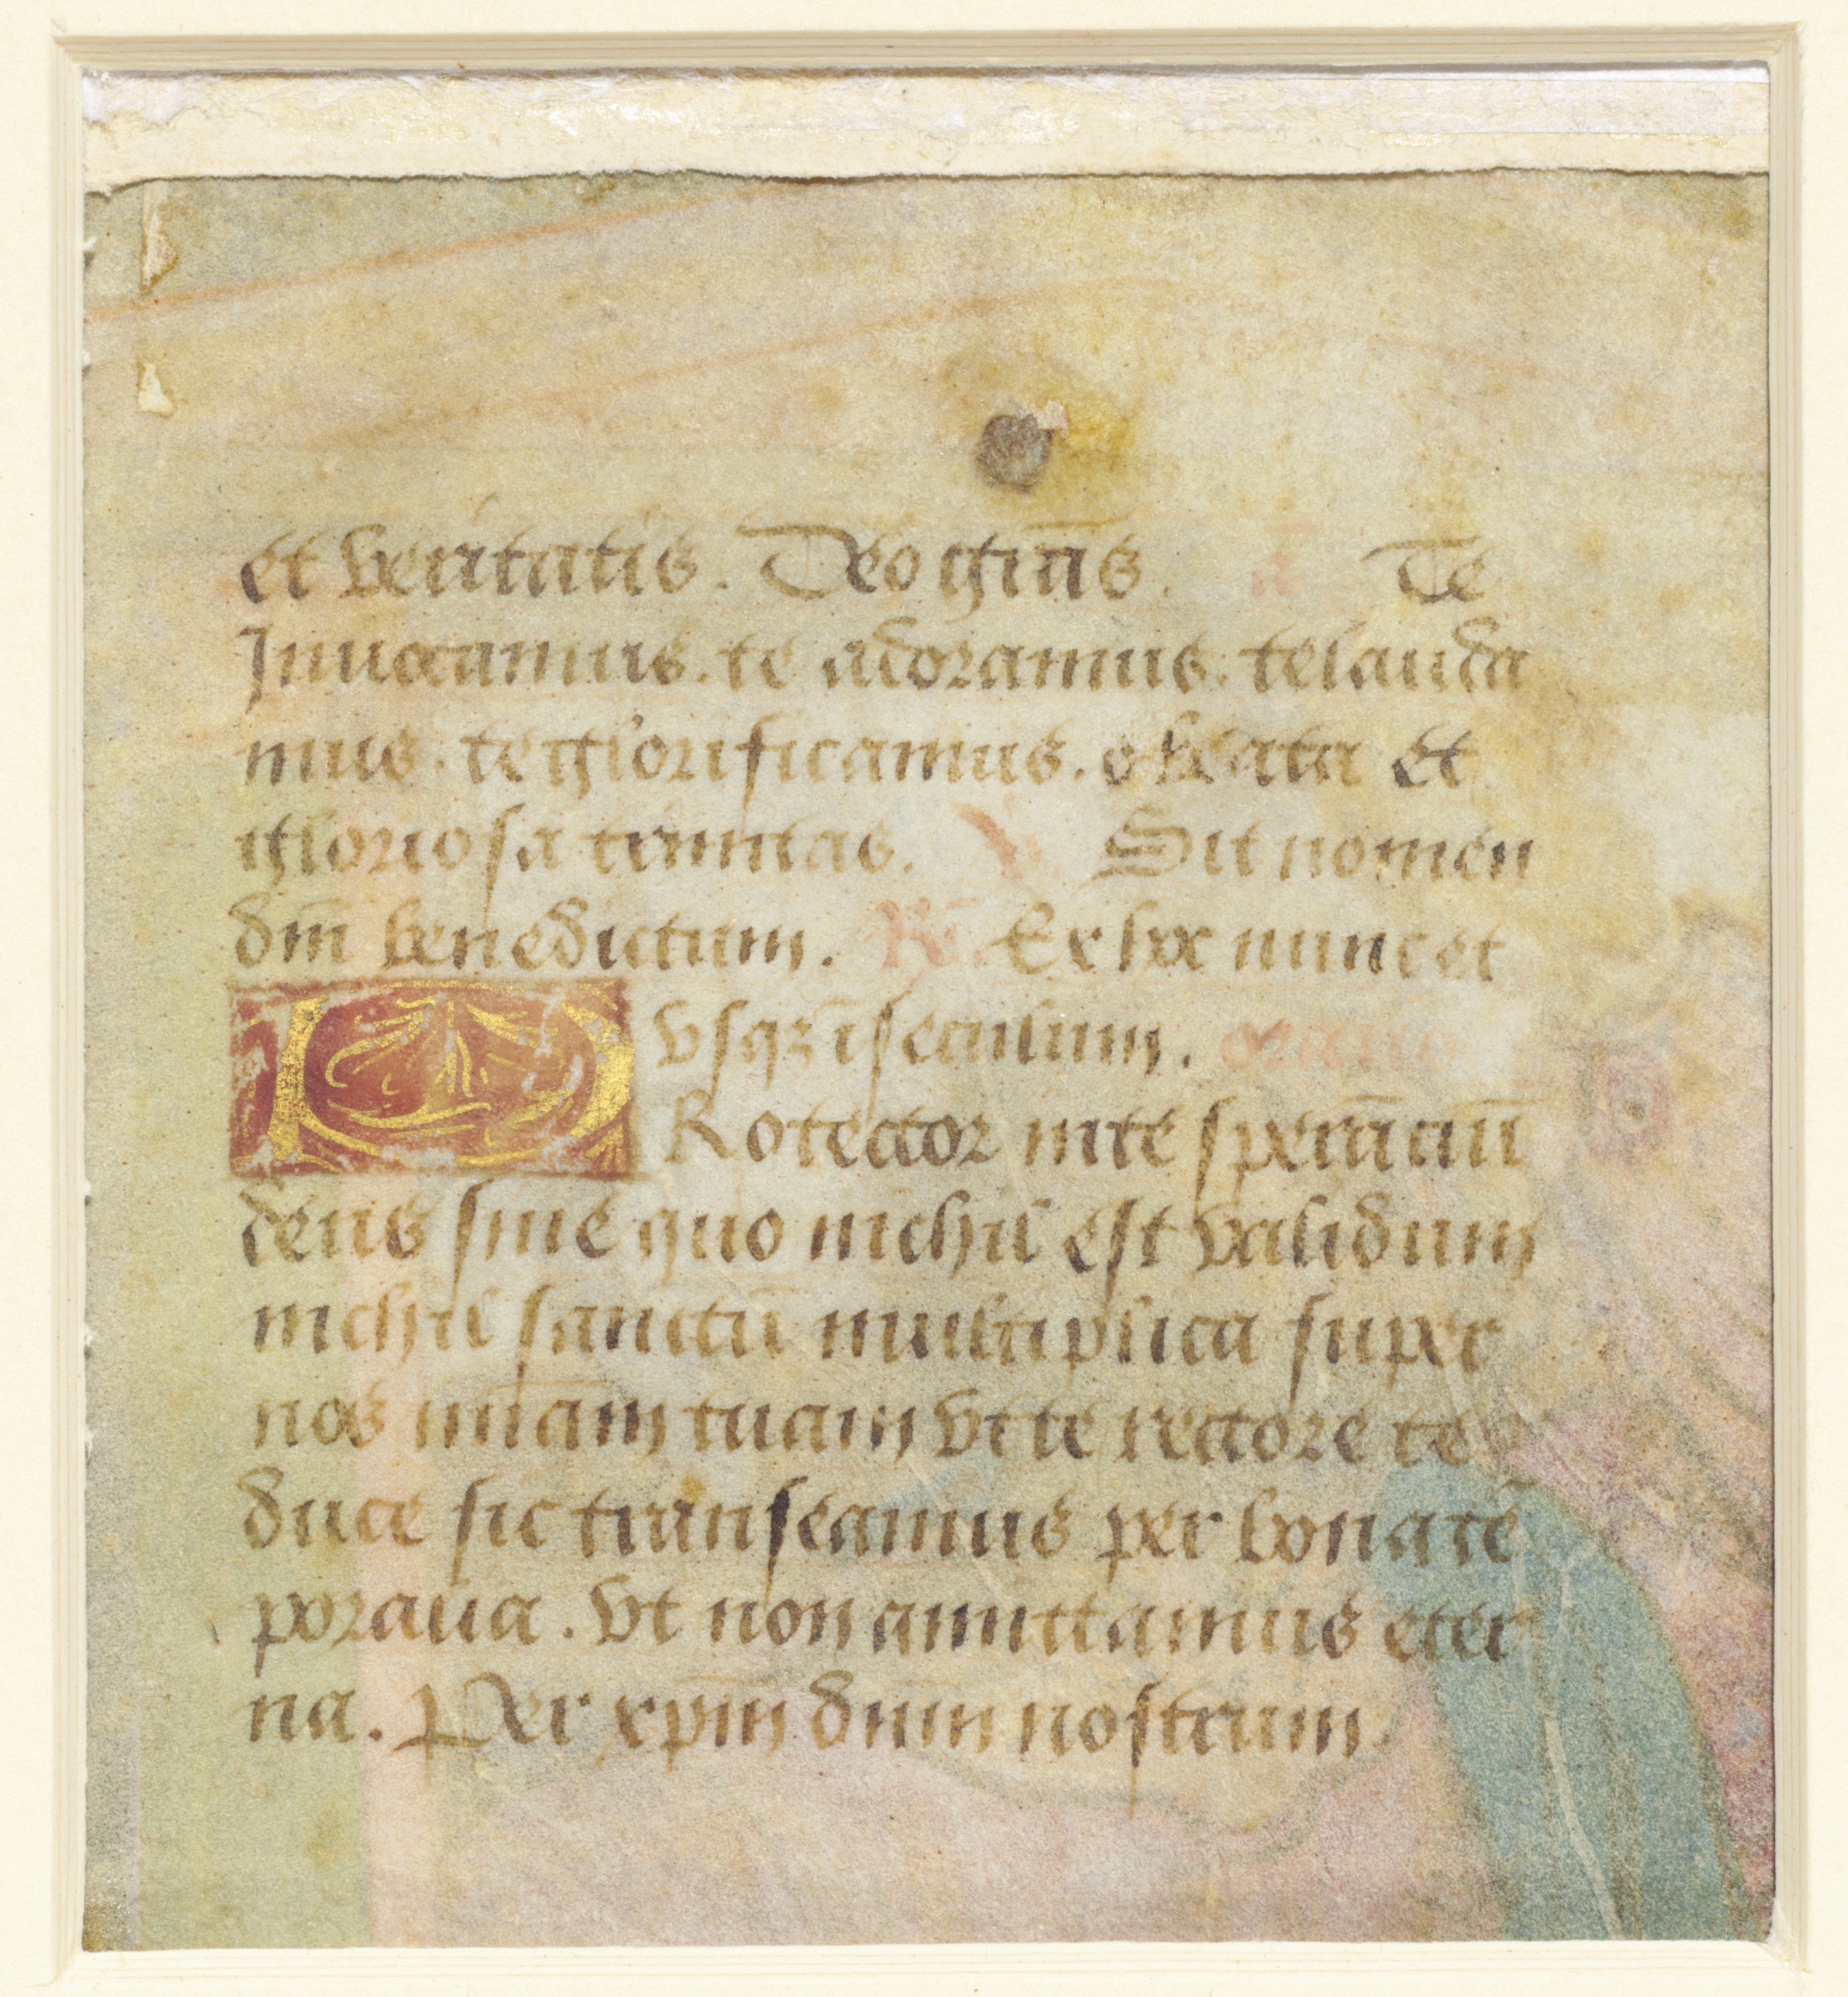 et veritatis. Deo grãs. ã Te
Inuocamus. te adoramus. te lauda
mus. te glorificamus. o beata et
gloriosa trinitas. V. Sit nomen
dñi benedictum. R̃. Ex hoc nunc et
vsqꝫ ĩ seculum. oratio
PRotector in te sperãciũ
deus sine quo nichil est validum
nichil sanctũ multiplica super
nos mĩam tuam vt te rectore te
duce sic transeamus per bona tẽ
poralia. vt non amittamus eter
na. Per xp̃m dñm nostrum.